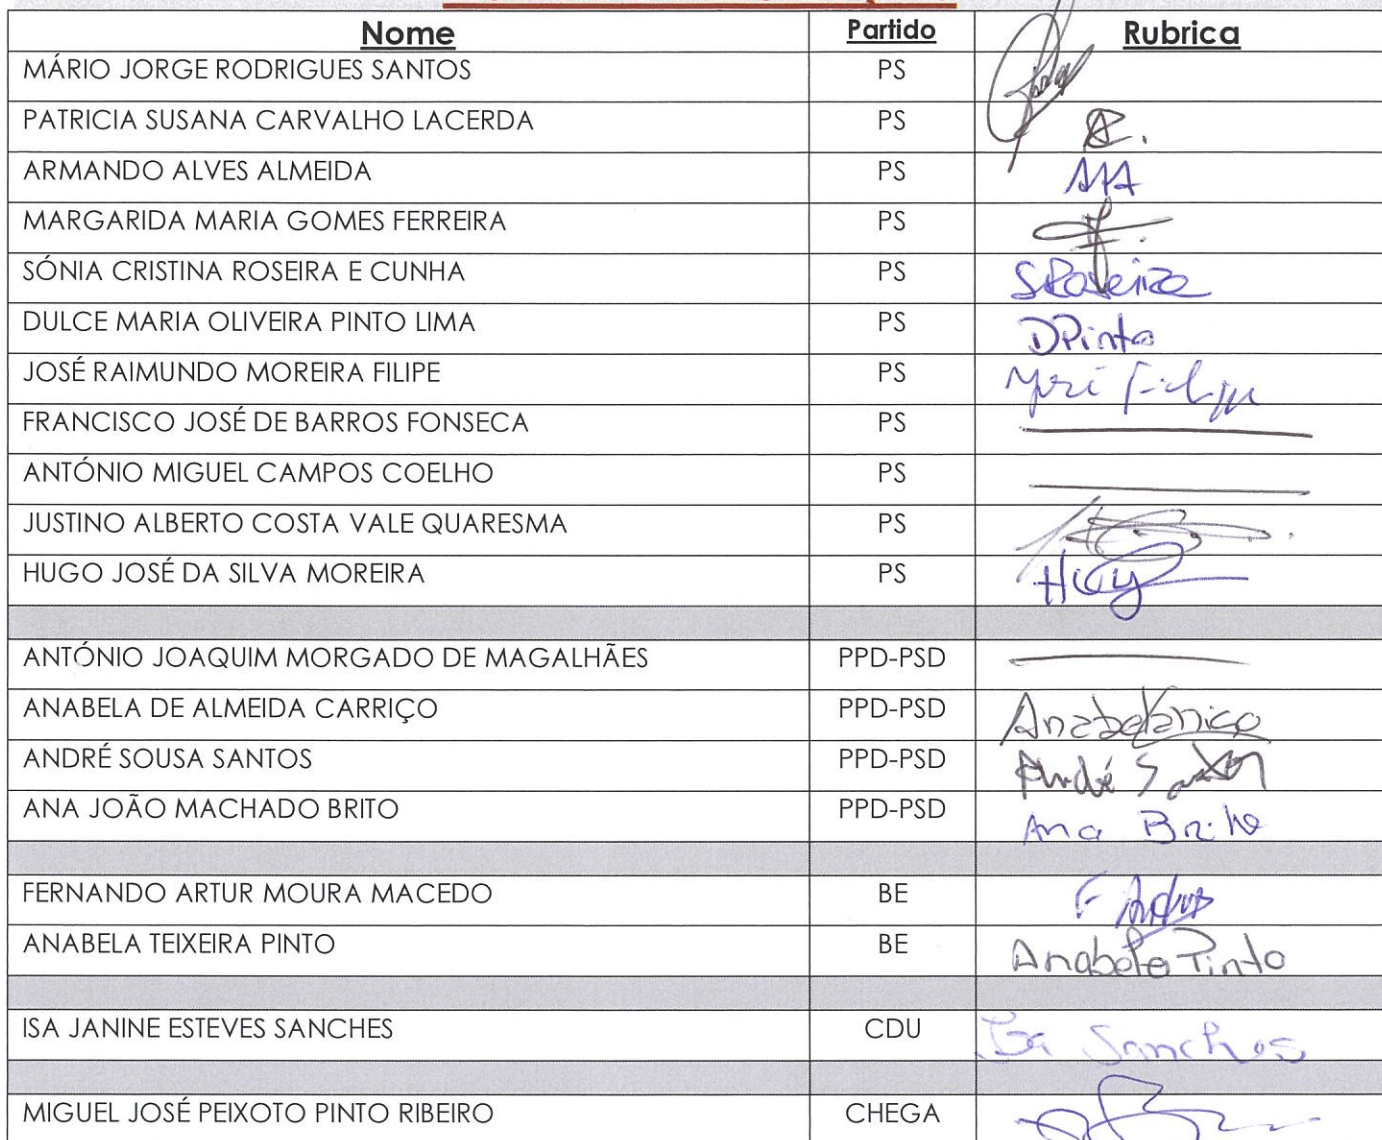 Nome Partido Rubrica
MÁRIO JORGE RODRIGUES SANTOS PS
PATRICIA SUSANA CARVALHO LACERDA PS
ARMANDO ALVES ALMEIDA PS AAA
MARGARIDA MARIA GOMES FERREIRA PS
SÓNIA CRISTINA ROSEIRA E CUNHA PS SRoseira
DULCE MARIA OLIVEIRA PINTO LIMA PS DPinto
JOSÉ RAIMUNDO MOREIRA FILIPE PS José Filipe
FRANCISCO JOSÉ DE BARROS FONSECA PS
ANTÓNIO MIGUEL CAMPOS COELHO PS
JUSTINO ALBERTO COSTA VALE QUARESMA PS
HUGO JOSÉ DA SILVA MOREIRA PS Hugo
ANTÓNIO JOAQUIM MORGADO DE MAGALHÃES PPD-PSD
ANABELA DE ALMEIDA CARRIÇO PPD-PSD
ANDRÉ SOUSA SANTOS PPD-PSD André Santos
ANA JOÃO MACHADO BRITO PPD-PSD Ana Brito
FERNANDO ARTUR MOURA MACEDO BE F Artur
ANABELA TEIXEIRA PINTO BE Anabela Pinto
ISA JANINE ESTEVES SANCHES CDU Isa Sanches
MIGUEL JOSÉ PEIXOTO PINTO RIBEIRO CHEGA